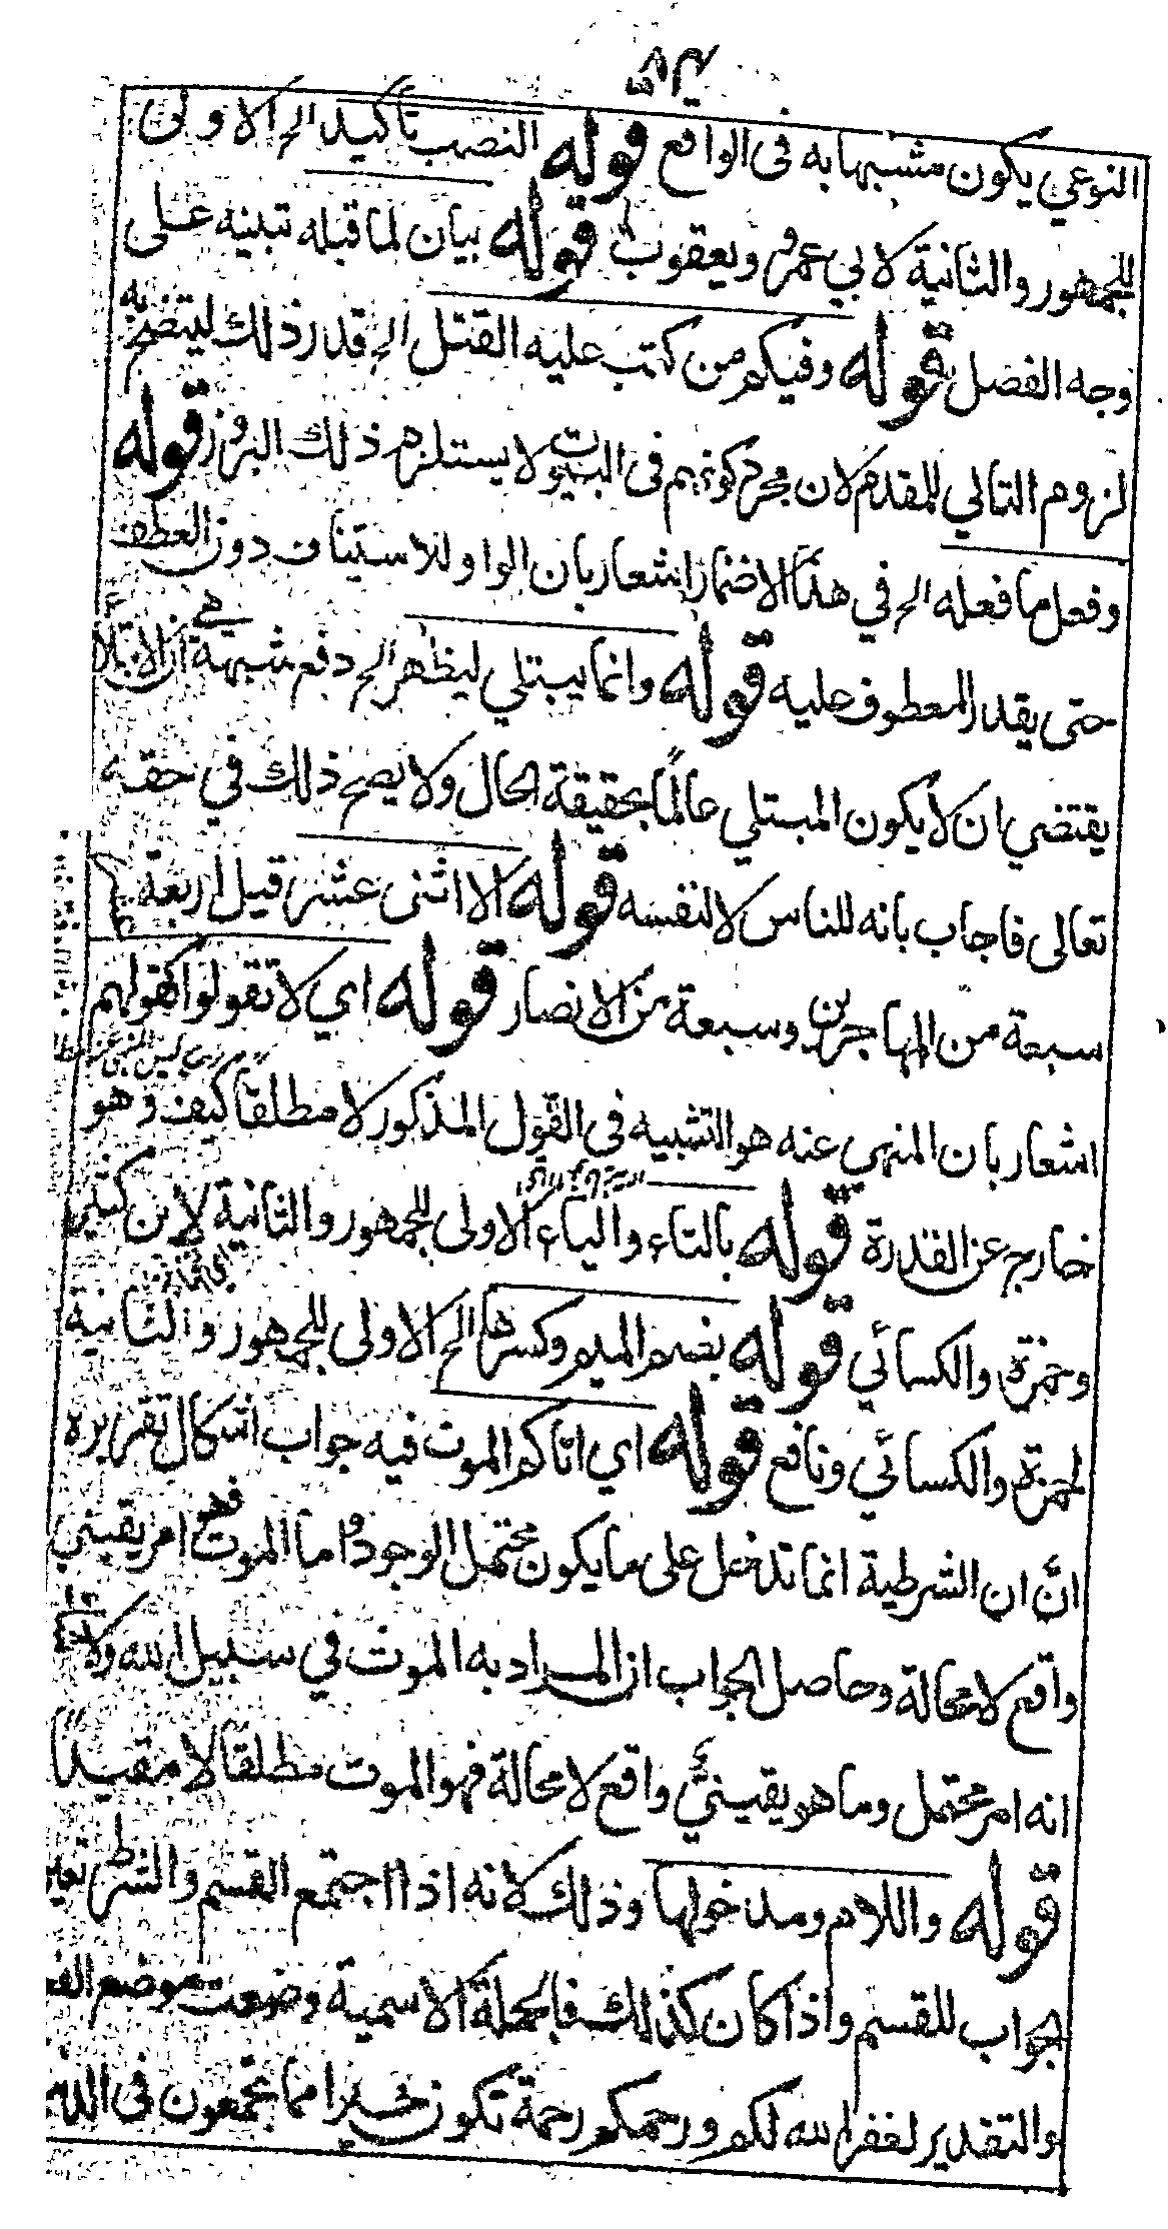 النوعي يكون مشبها به في الواقع قوله النصب تأكيد الخ الاولى
للجمهور والثانية لابي عمرو ويعقوب قوله بيان لما قبله تبنيه على
وجه الفضل به قوله وفيكم من كتب عليه القتل الخ قدر ذلك ليتضح به
لزوم التالي للمقدم لان مجرد كونهم في البيوت لا يستلزم ذلك البروز قوله
وفعل ما فعله الخ في هذا الاضمار اشعار بان الواو للاستيناف دون العطف
حتى يقدر المعطوف عليه قوله وانما يبتلي ليظهر الخ دفع شبهة هي ان الابتلاء
يقتضي ان لا يكون المبتلي عالما بحقيقة الحال ولا يصح ذلك في حقه
تعالى فاجاب بانه للناس لا لنفسه قوله الا اثنى عشر قيل اربعة
سبعة من المهاجرين وسبعة من الانصار قوله اي لا تقولوا كقولهم
اشعار بان المنهي عنه هو التشبيه في القول المذكور لا مطلقا كيف وهو
خارج عن القدرة قوله بالتاء والياء الاولى للجمهور والثانية لابن كثير
وحمزة والكسائي قوله بضم الميم وكسرها الخ الاولى للجمهور والثانية
لحمزة والكسائي ونافع قوله اي اتاكم الموت فيه جواب اشكال تقريره
انّ ان الشرطية انما تدخل على ما يكون محتمل الوجود واما الموت فهو امر يقيني
واقع لا محالة وحاصل الجواب ان المراد به الموت في سبيل الله ولا
انه امر محتمل وما هو يقينيّ واقع لا محالة فهو الموت مطلقا لا مقيداً
قوله واللام ومدخولها وذلك لانه اذا اجتمع القسم والشرط
الجواب للقسم واذا كان كذلك فالجملة الاسمية وضعت موضع
والتقدير لغفر الله لكم ورحمكم رحمة تكون خيرا مما تجمعون في